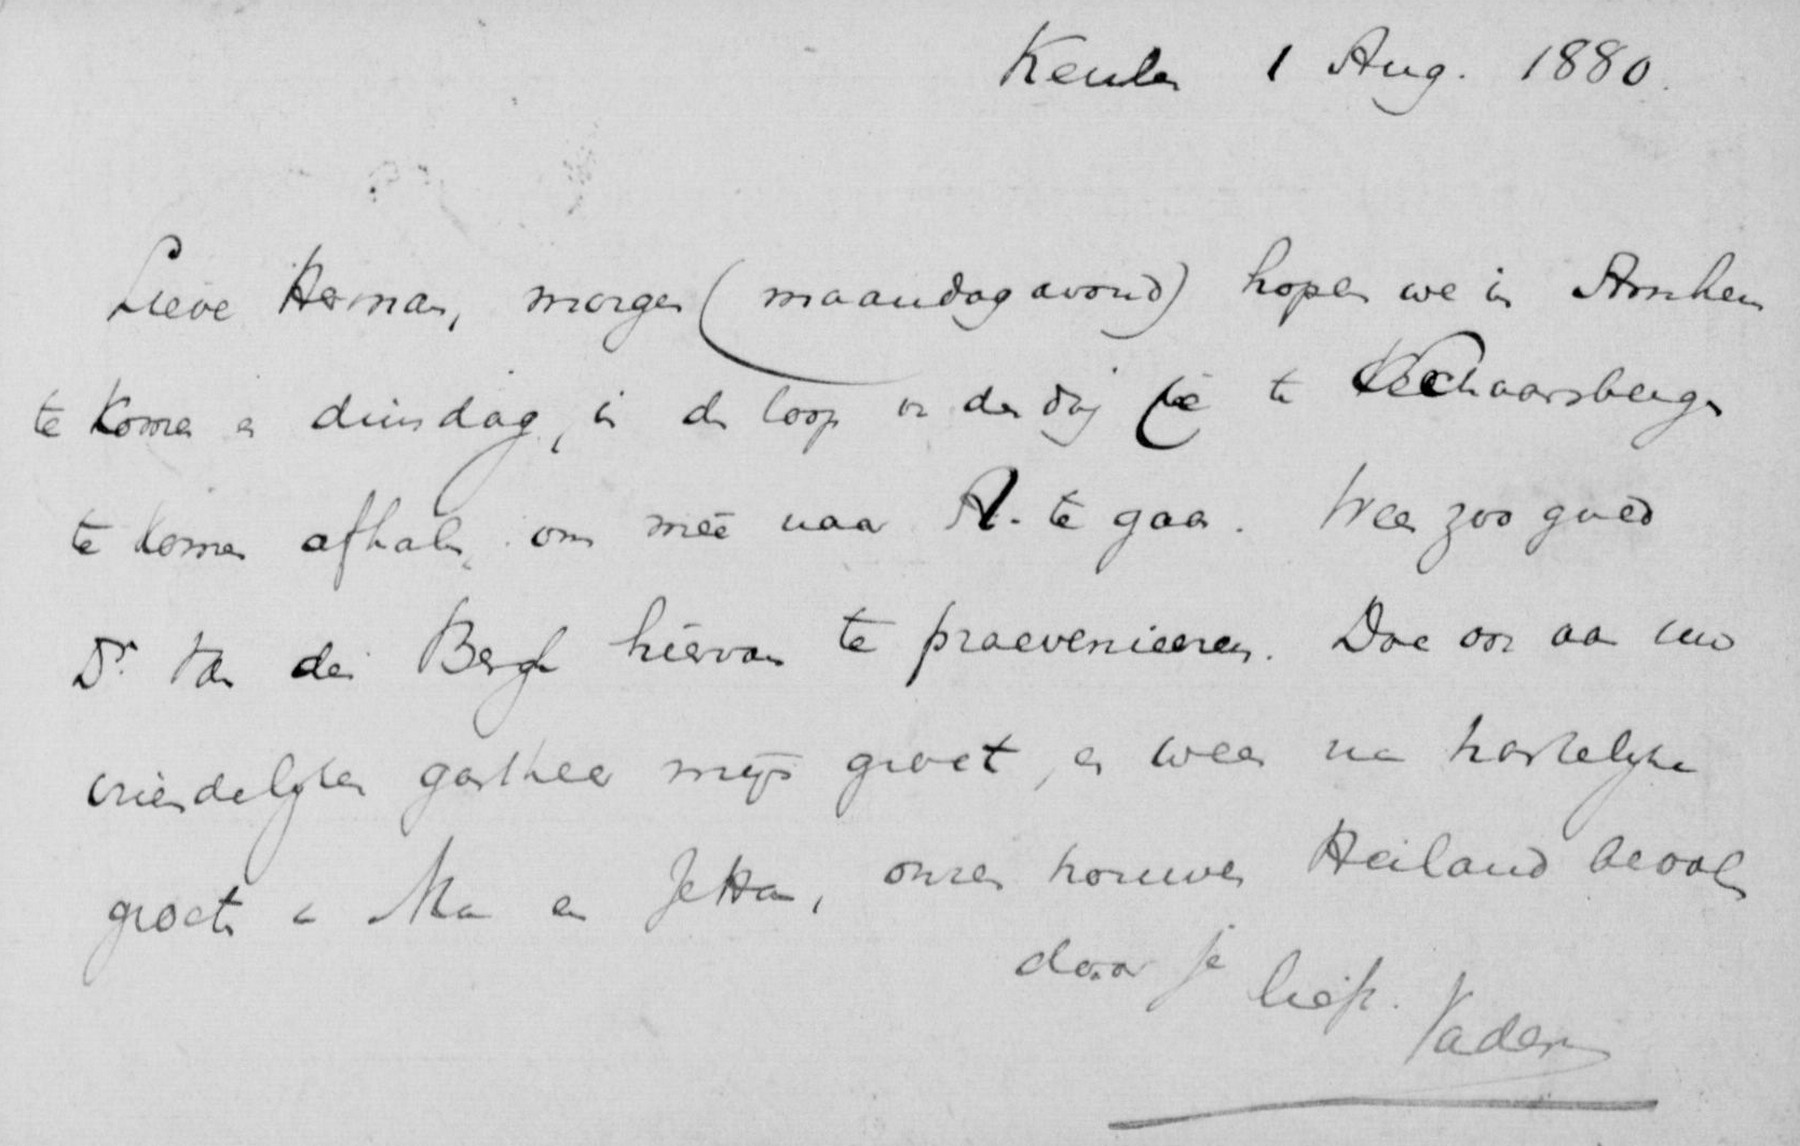 Keulen 1 Aug. 1880.
Lieve Herman, morgen (maandagavond) hopen we in Arnhem
te komen en dinsdag, in den loop v den dag je te Schaarsbergen
te komen afhalen, om meê naar A. te gaan. Wees zoo goed
Dr. van den Bergh hiervan te praevenieeren. Doe ook aan uw
vriendelijken gastheer mijn groet, en wees na hartelijke
groete v Ma en Jettan, onzen trouwen Heiland bevolen
door je liefh. Vader